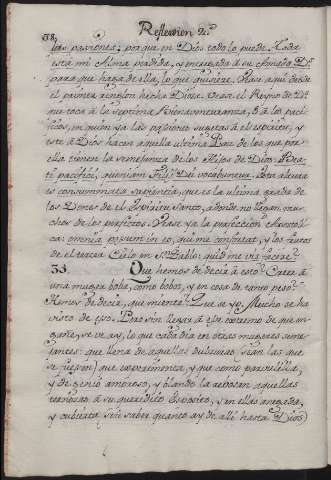 58.
Reflexion 2.ª
las pasiones: porque en Dios todo lo puede. Toda
está mi Alma perdida, y entregada a su Amado D.s
para que haga de ella, lo que quisiere. Veasé aqui desde
el primer renglon hecha Diosa. Vease el Reyno de D.s
que toca à la septima Bienaventuranza, à los paci-
ficos, en quien yá las pasiones sugetas al espiritu, y
este à Dios hacen aquella ultima Paz de los que por
ella tienen la semejanza de los Hijos de Dios: Bea-
ti pacifici, quoniam Filii Dei vocabuntur. Esta altura
es consummata sapientia, que es la ultima grada de
los Dones de el Espiritu Santo, adonde no llegan mu-
chos de los perfectos. Vease yá la perfeccion Apostoli-
ca: omnia possum in eo, qui me confortat, y los favores
de el tercer Cielo en S. Pablo: quid me vis facere?
35. Que hemos de decir à esto? Creer à
una muger bolla, como bobos, y en cosa de tanto peso?
Hemos de decir, que miente? Que se yo. Mucho se ha
visto de eso. Pero sin llegar à ese extremo de que en-
gañe, se ve ay, lo que cada dia en otras mugeres seme-
jantes: que llena de aquellas dulzuras (sean las que
se fuesen) que experimenta, y que como
y de genio amoroso, y blando la rebosan aquellas
ternuras à su queridito Esposito, y en ellas anegada,
y cubierta (sin saber quanto ay de alli hasta Dios)